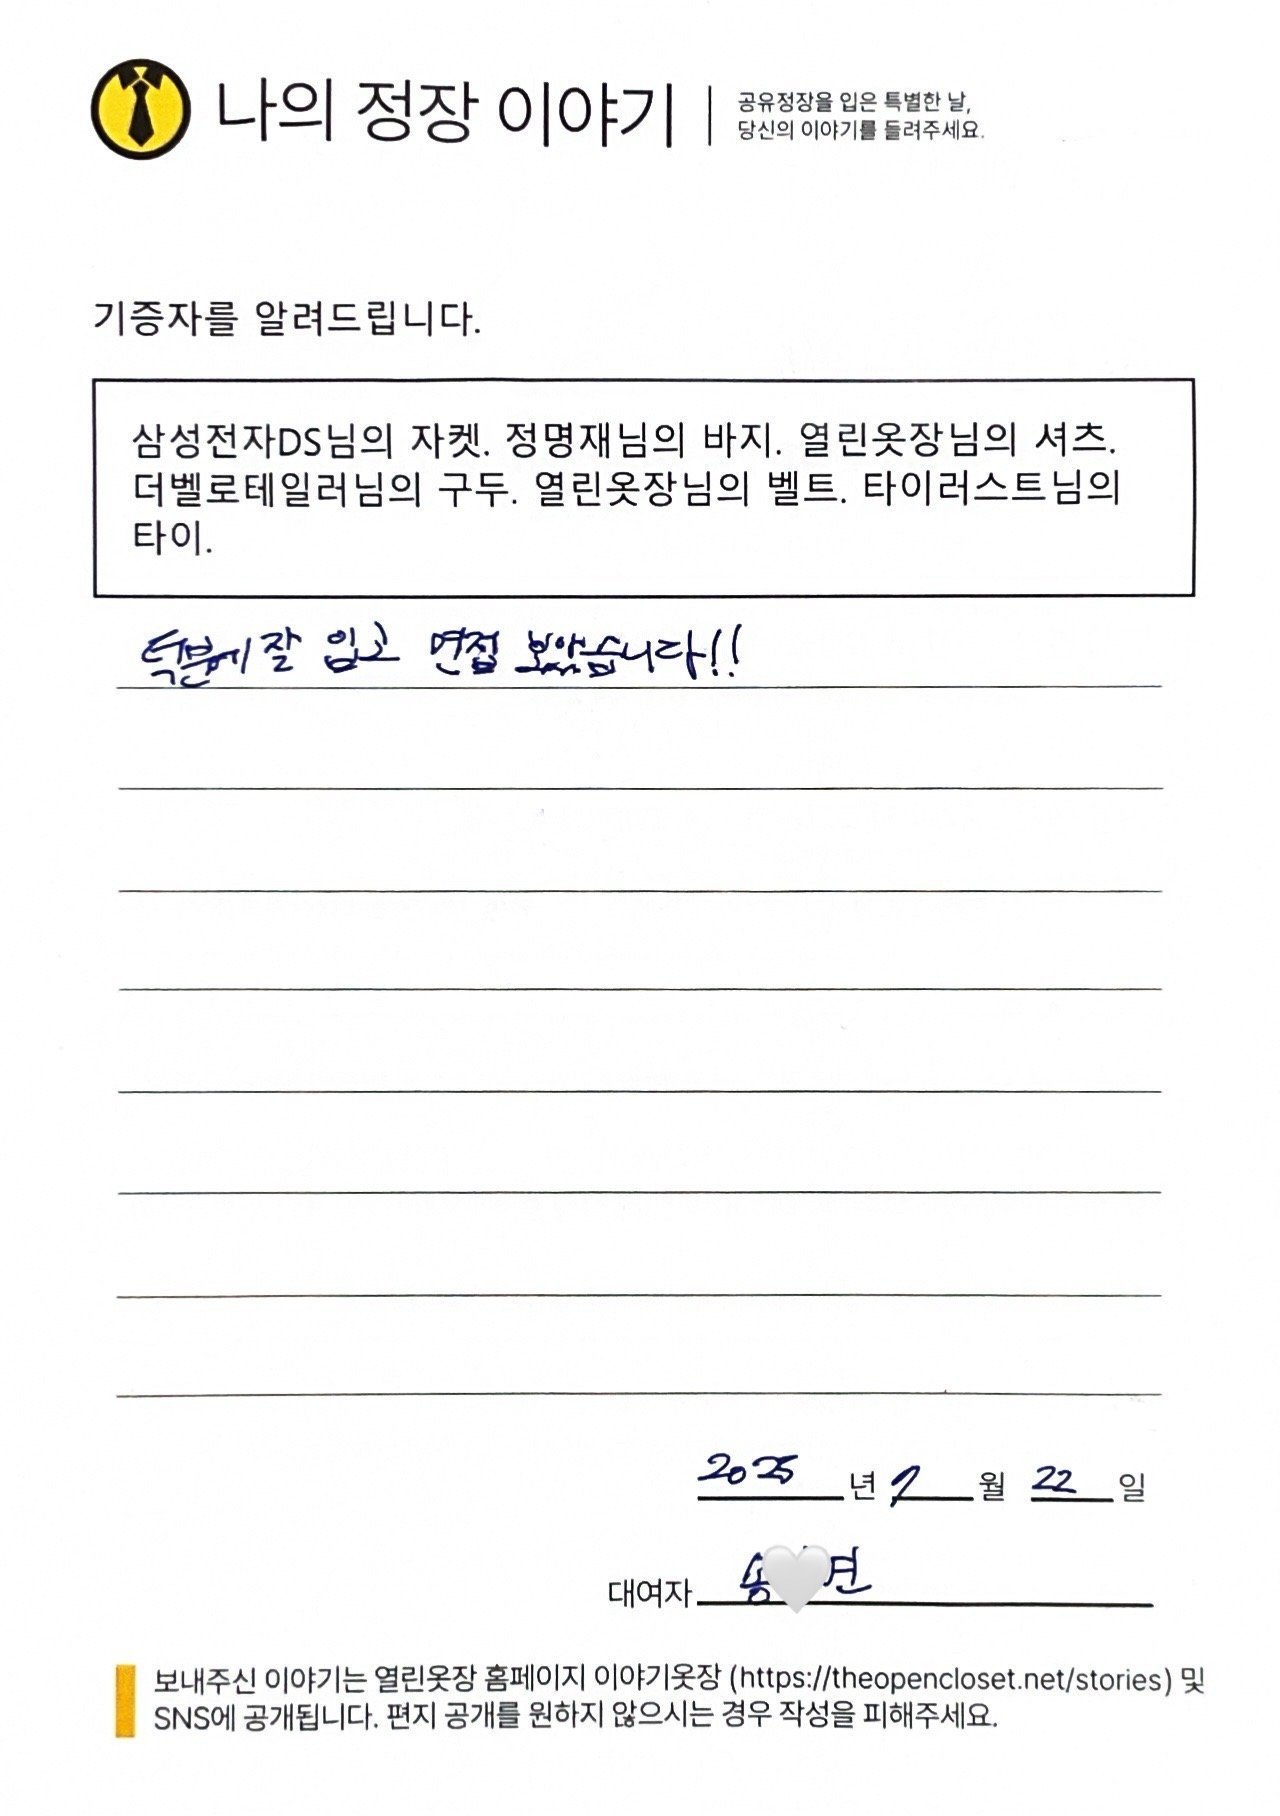 나의 정장 이야기
공유정장을 입은 특별한 날,
당신의 이야기를 들려주세요.
기증자를 알려드립니다.
삼성전자DS님의 자켓. 정명재님의 바지. 열린옷장님의 셔츠.
더벨로테일러님의 구두. 열린옷장님의 벨트. 타이러스트님의
타이.
덕분에 잘 입고 면접 보았습니다!!
2025년 7월 22일
대여자 송
보내주신 이야기는 열린옷장 홈페이지 이야기옷장 (https://theopencloset.net/stories) 및
SNS에 공개됩니다. 편지 공개를 원하지 않으시는 경우 작성을 피해주세요.